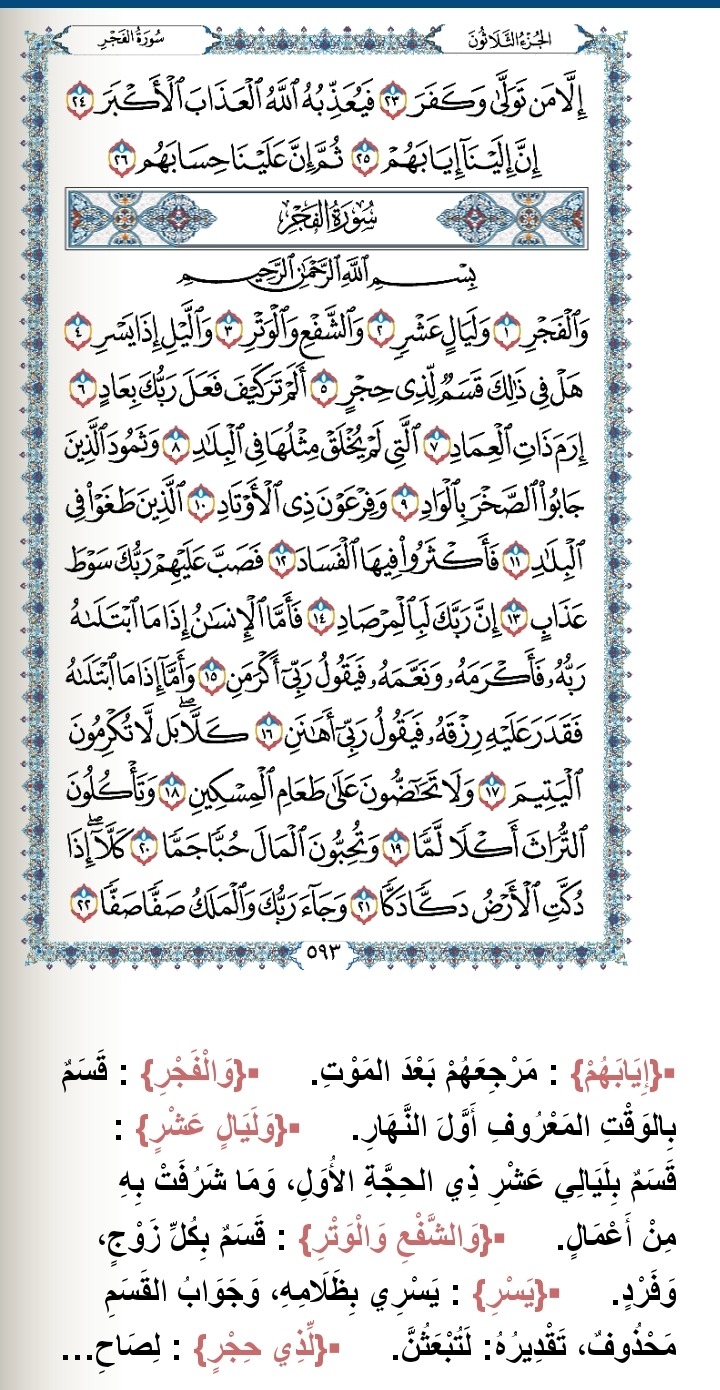 سُورَةُ الفَجْرِ الجُزْءُ الثَّلَاثُونَ
إِلَّا مَن تَوَلَّىٰ وَكَفَرَ ٢٣ فَيُعَذِّبُهُ ٱللَّهُ ٱلْعَذَابَ ٱلْأَكْبَرَ ٢٤
إِنَّ إِلَيْنَآ إِيَابَهُمْ ٢٥ ثُمَّ إِنَّ عَلَيْنَا حِسَابَهُم ٢٦
سُورَةُ الفَجْرِ
بِسْمِ ٱللَّهِ ٱلرَّحْمَٰنِ ٱلرَّحِيمِ
وَٱلْفَجْرِ ١ وَلَيَالٍ عَشْرٍ ٢ وَٱلشَّفْعِ وَٱلْوَتْرِ ٣ وَٱلَّيْلِ إِذَا يَسْرِ ٤
هَلْ فِى ذَٰلِكَ قَسَمٌ لِّذِى حِجْرٍ ٥ أَلَمْ تَرَ كَيْفَ فَعَلَ رَبُّكَ بِعَادٍ ٦
إِرَمَ ذَاتِ ٱلْعِمَادِ ٧ ٱلَّتِى لَمْ يُخْلَقْ مِثْلُهَا فِى ٱلْبِلَٰدِ ٨ وَثَمُودَ ٱلَّذِينَ
جَابُوا۟ ٱلصَّخْرَ بِٱلْوَادِ ٩ وَفِرْعَوْنَ ذِى ٱلْأَوْتَادِ ١٠ ٱلَّذِينَ طَغَوْا۟ فِى
ٱلْبِلَٰدِ ١١ فَأَكْثَرُوا۟ فِيهَا ٱلْفَسَادَ ١٢ فَصَبَّ عَلَيْهِمْ رَبُّكَ سَوْطَ
عَذَابٍ ١٣ إِنَّ رَبَّكَ لَبِٱلْمِرْصَادِ ١٤ فَأَمَّا ٱلْإِنسَٰنُ إِذَا مَا ٱبْتَلَىٰهُ
رَبُّهُۥ فَأَكْرَمَهُۥ وَنَعَّمَهُۥ فَيَقُولُ رَبِّىٓ أَكْرَمَنِ ١٥ وَأَمَّآ إِذَا مَا ٱبْتَلَىٰهُ
فَقَدَرَ عَلَيْهِ رِزْقَهُۥ فَيَقُولُ رَبِّىٓ أَهَٰنَنِ ١٦ كَلَّا ۖ بَل لَّا تُكْرِمُونَ
ٱلْيَتِيمَ ١٧ وَلَا تَحَٰٓضُّونَ عَلَىٰ طَعَامِ ٱلْمِسْكِينِ ١٨ وَتَأْكُلُونَ
ٱلتُّرَاثَ أَكْلًا لَّمًّا ١٩ وَتُحِبُّونَ ٱلْمَالَ حُبًّا جَمًّا ٢٠ كَلَّآ ۖ إِذَا
دُكَّتِ ٱلْأَرْضُ دَكًّا دَكًّا ٢١ وَجَآءَ رَبُّكَ وَٱلْمَلَكُ صَفًّا صَفًّا ٢٢
٥٩٣
▪{إِيَابَهُمْ} : مَرْجِعَهُمْ بَعْدَ المَوْتِ. ▪{وَالْفَجْرِ} : قَسَمٌ
بِالوَقْتِ المَعْرُوفِ أَوَّلَ النَّهَارِ. ▪{وَلَيَالٍ عَشْرٍ} :
قَسَمٌ بِلَيَالِي عَشْرِ ذِي الحِجَّةِ الأُوَلِ، وَمَا شَرُفَتْ بِهِ
مِنْ أَعْمَالٍ. ▪{وَالشَّفْعِ وَالْوَتْرِ} : قَسَمٌ بِكُلِّ زَوْجٍ،
وَفَرْدٍ. ▪{يَسْرِ} : يَسْرِي بِظَلَامِهِ، وَجَوَابُ القَسَمِ
مَحْذُوفٌ، تَقْدِيرُهُ: لَتُبْعَثُنَّ. ▪{لِّذِي حِجْرٍ} : لِصَاحِ...